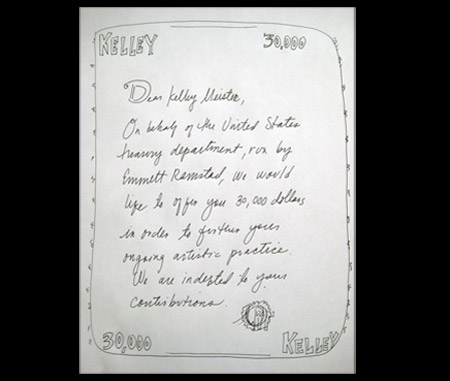 KELLEY 30,000
Dear Kelley Meister,
On behalf of the United States
treasury department, run by
Emmett Ramstad, We would
like to offer you 30,000 dollars
in order to further your
ongoing artistic practice.
We are indebted to your
contributions.
30,000 KELLEY